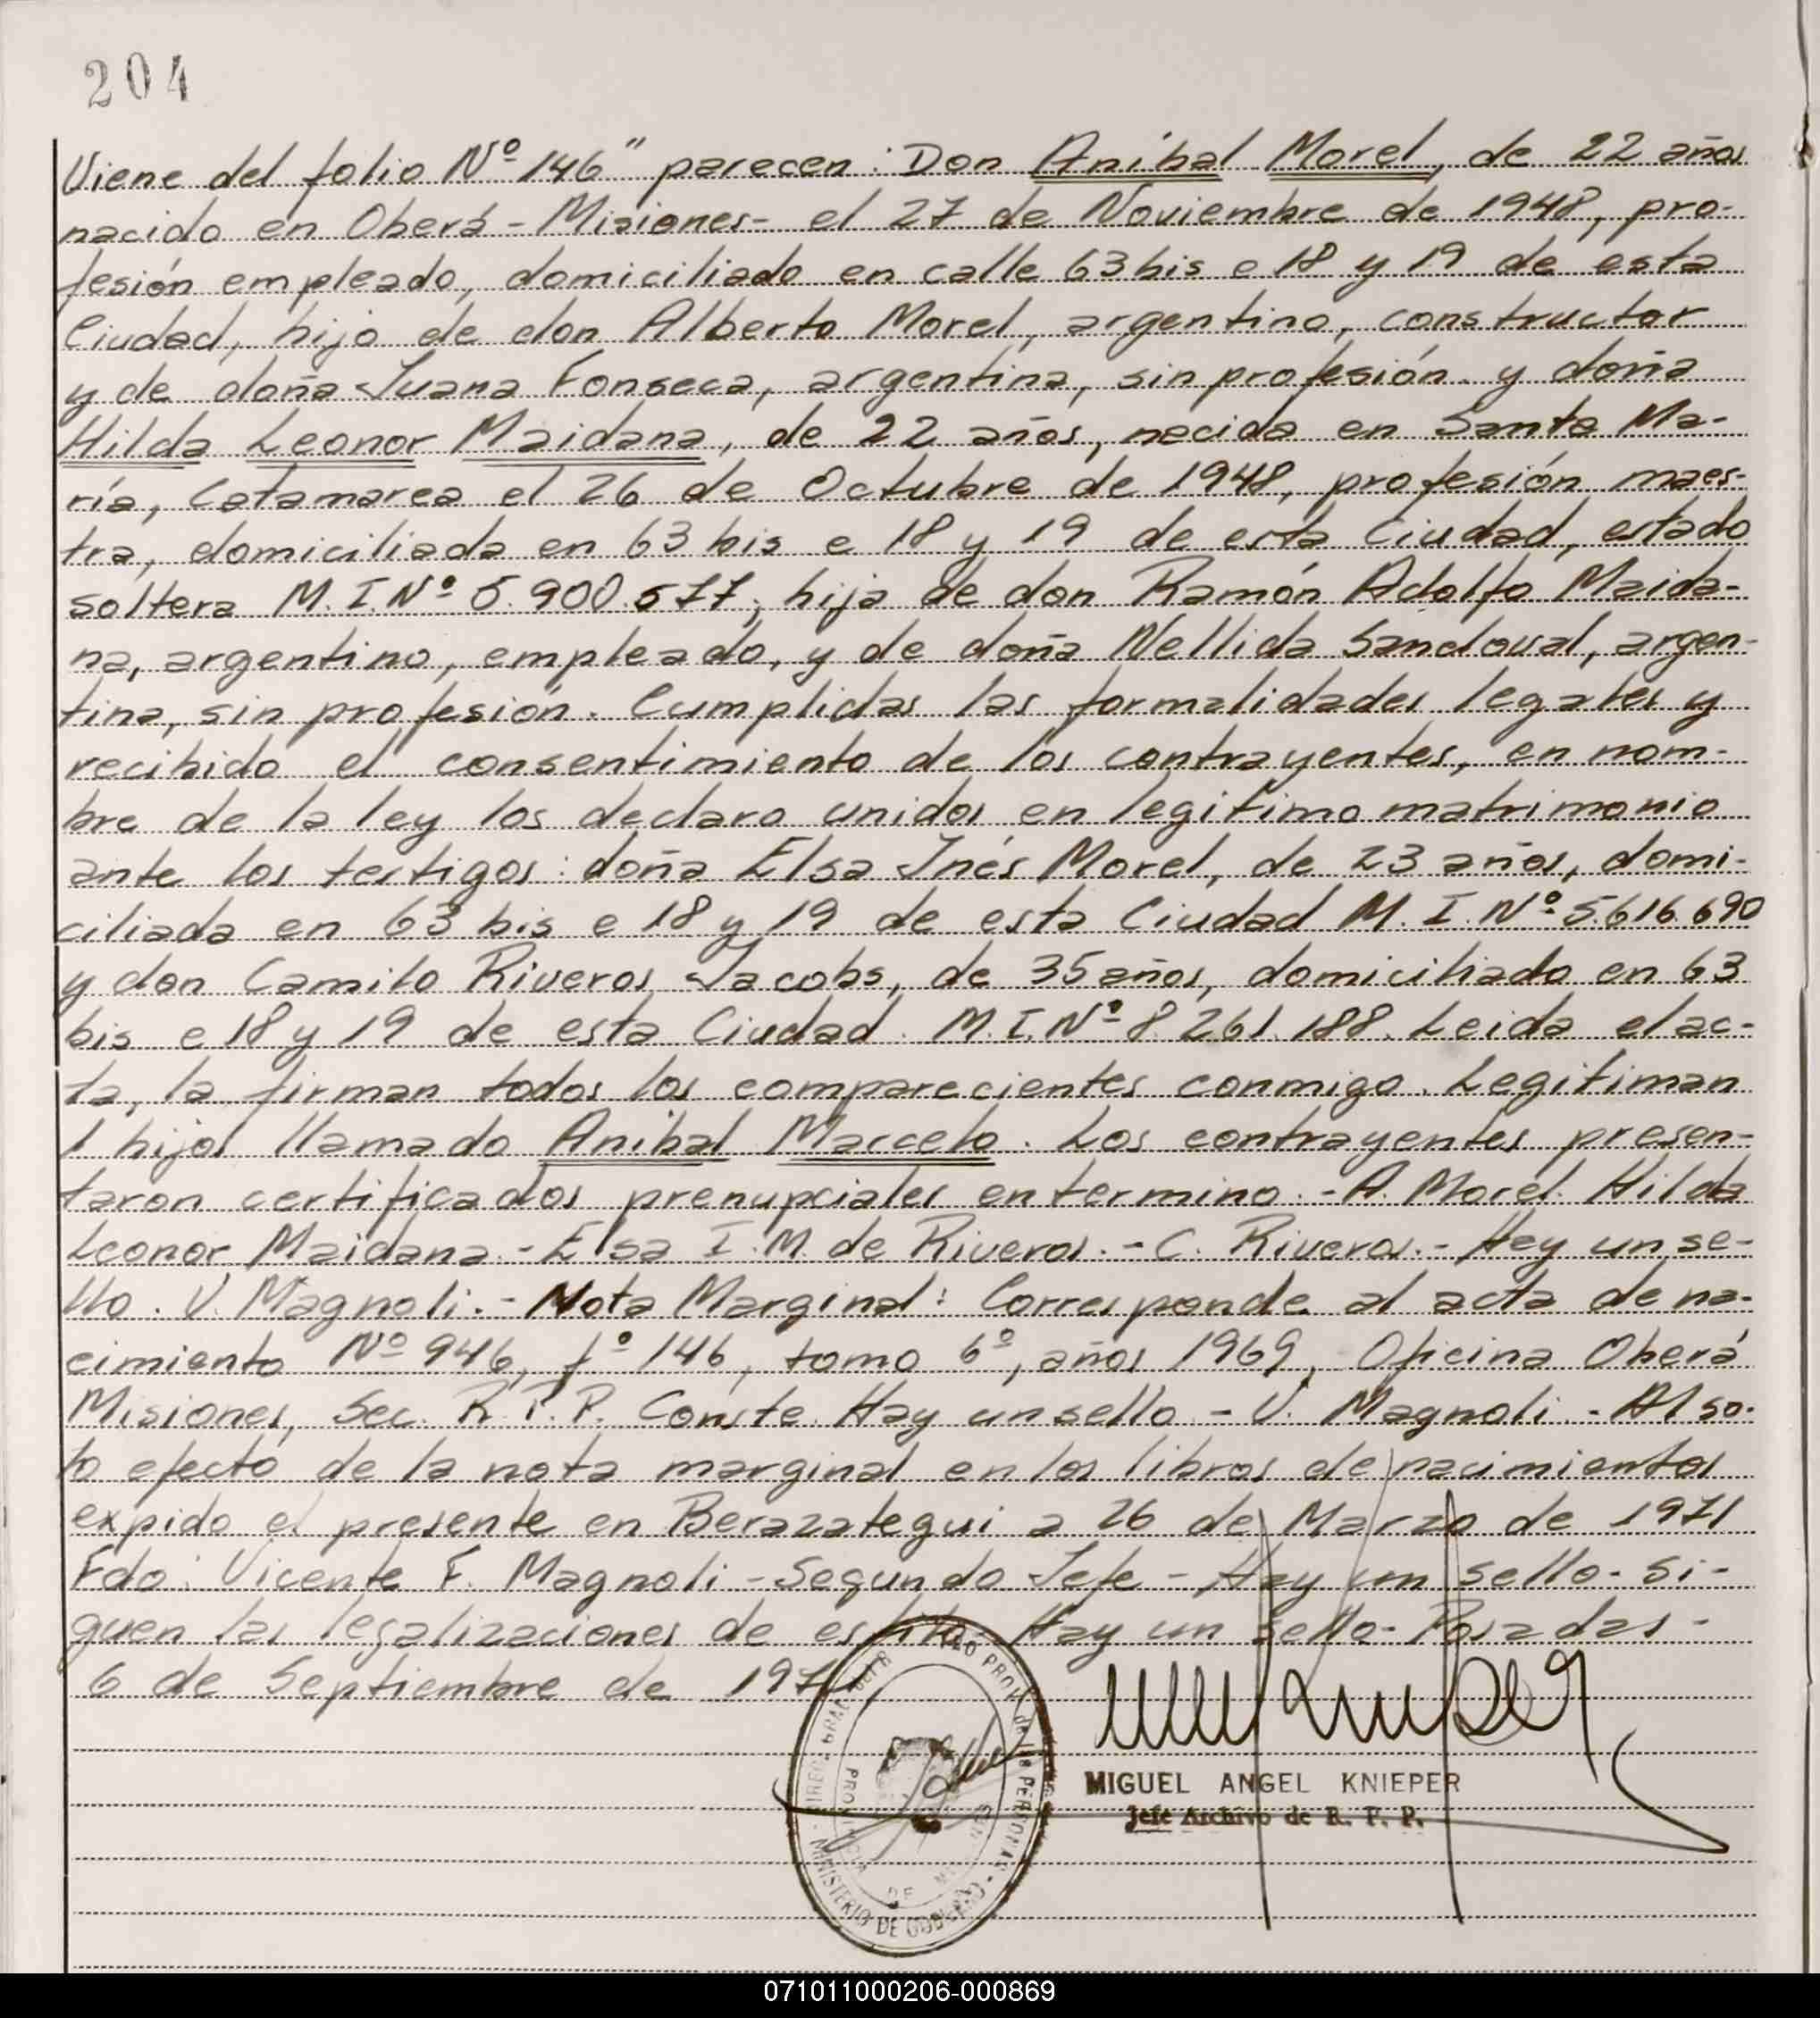 204
Viene del folio Nº 146" parecen: Don Anibal Morel, de 22 años
nacido en Oberá - Misiones - el 27 de Noviembre de 1948, pro-
fesión empleado, domiciliado en calle 63 bis e 18 y 19 de esta
Ciudad, hijo de don Alberto Morel, argentino, constructor
y de doña Juana Fonseca, argentina, sin profesión. y doña
Hilda Leonor Maidana, de 22 años, nacida en Santa Ma-
ría, Catamarca el 26 de Octubre de 1948, profesión maes-
tra, domiciliada en 63 bis e 18 y 19 de esta Ciudad, estado
soltera M. I. Nº 5.900.577, hija de don Ramón Adolfo Maida-
na, argentino, empleado, y de doña Nellida Sandoval, argen-
tina, sin profesión. Cumplidas las formalidades legales y
recibido el consentimiento de los contrayentes, en nom-
bre de la ley los declaro unidos en legitimo matrimonio
ante los testigos: doña Elsa Inés Morel, de 23 años, domi-
ciliada en 63 bis e 18 y 19 de esta Ciudad M. I. Nº 5.616.690
y don Camilo Riveros Jacobs, de 35 años, domiciliado en 63
bis e 18 y 19 de esta Ciudad. M. I. Nº 8.261.188. Leida el ac-
ta, la firman todos los comparecientes conmigo. Legitiman
1 hijos llamado Anibal Marcelo. Los contrayentes presen-
taron certificados prenupciales en termino. - A. Morel. Hilda
Leonor Maidana. - Elsa I. M. de Riveros. - C. Riveros. - Hay un se-
llo. V. Magnoli. - Nota Marginal: Corresponde al acta de na-
cimiento Nº 946, fº 146, tomo 6º, años 1969, Oficina Oberá
Misiones, Sec. R. P. P. Conste. Hay un sello. - V. Magnoli. - Al so-
lo efecto de la nota marginal en los libros de nacimientos
expido el presente en Berazategui a 26 de Marzo de 1971
Fdo: Vicente F. Magnoli - Segundo Jefe - Hay un sello - Si-
guen las legalizaciones de estilo - Hay un sello - Posadas -
6 de Septiembre de 1971
MINISTERIO DE GOBIERNO
MIGUEL ANGEL KNIEPER
Jefe Archivo de R. P. P.
071011000206-000869